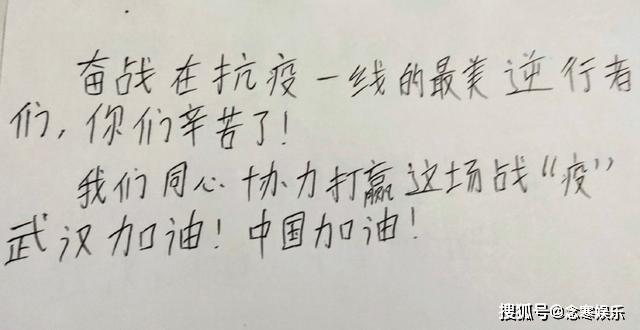 奋战在抗疫一线的最美逆行者
们，你们辛苦了！
我们同心协力打赢这场战“疫”
武汉加油！中国加油！
搜狐号@念寒娱乐